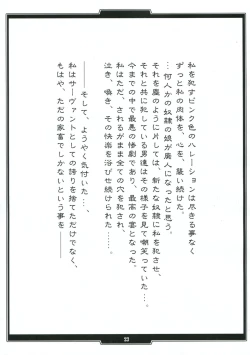 私を犯すピンク色のハレーションは尽きる事なく
ずっと私の肉体を、心を、装い続けた。
…何人かの奴隷の娘が廃人になったと思う。
それを塵のように片しては、新たな奴隷に私を犯させ、
それと共に犯している男達はその様子を見て嘲笑っていた…。
今までの中で最悪の惨劇であり、最高の宴となった。
私はただ、されるがまま全ての穴を犯され、
泣き、喚き、その快楽を浴びせ続けられた……。
――そして、ようやく気付いた…、
私はサーヴァントとしての誇りを捨てただけでなく、
もはや、ただの家畜でしかないという事を――
23